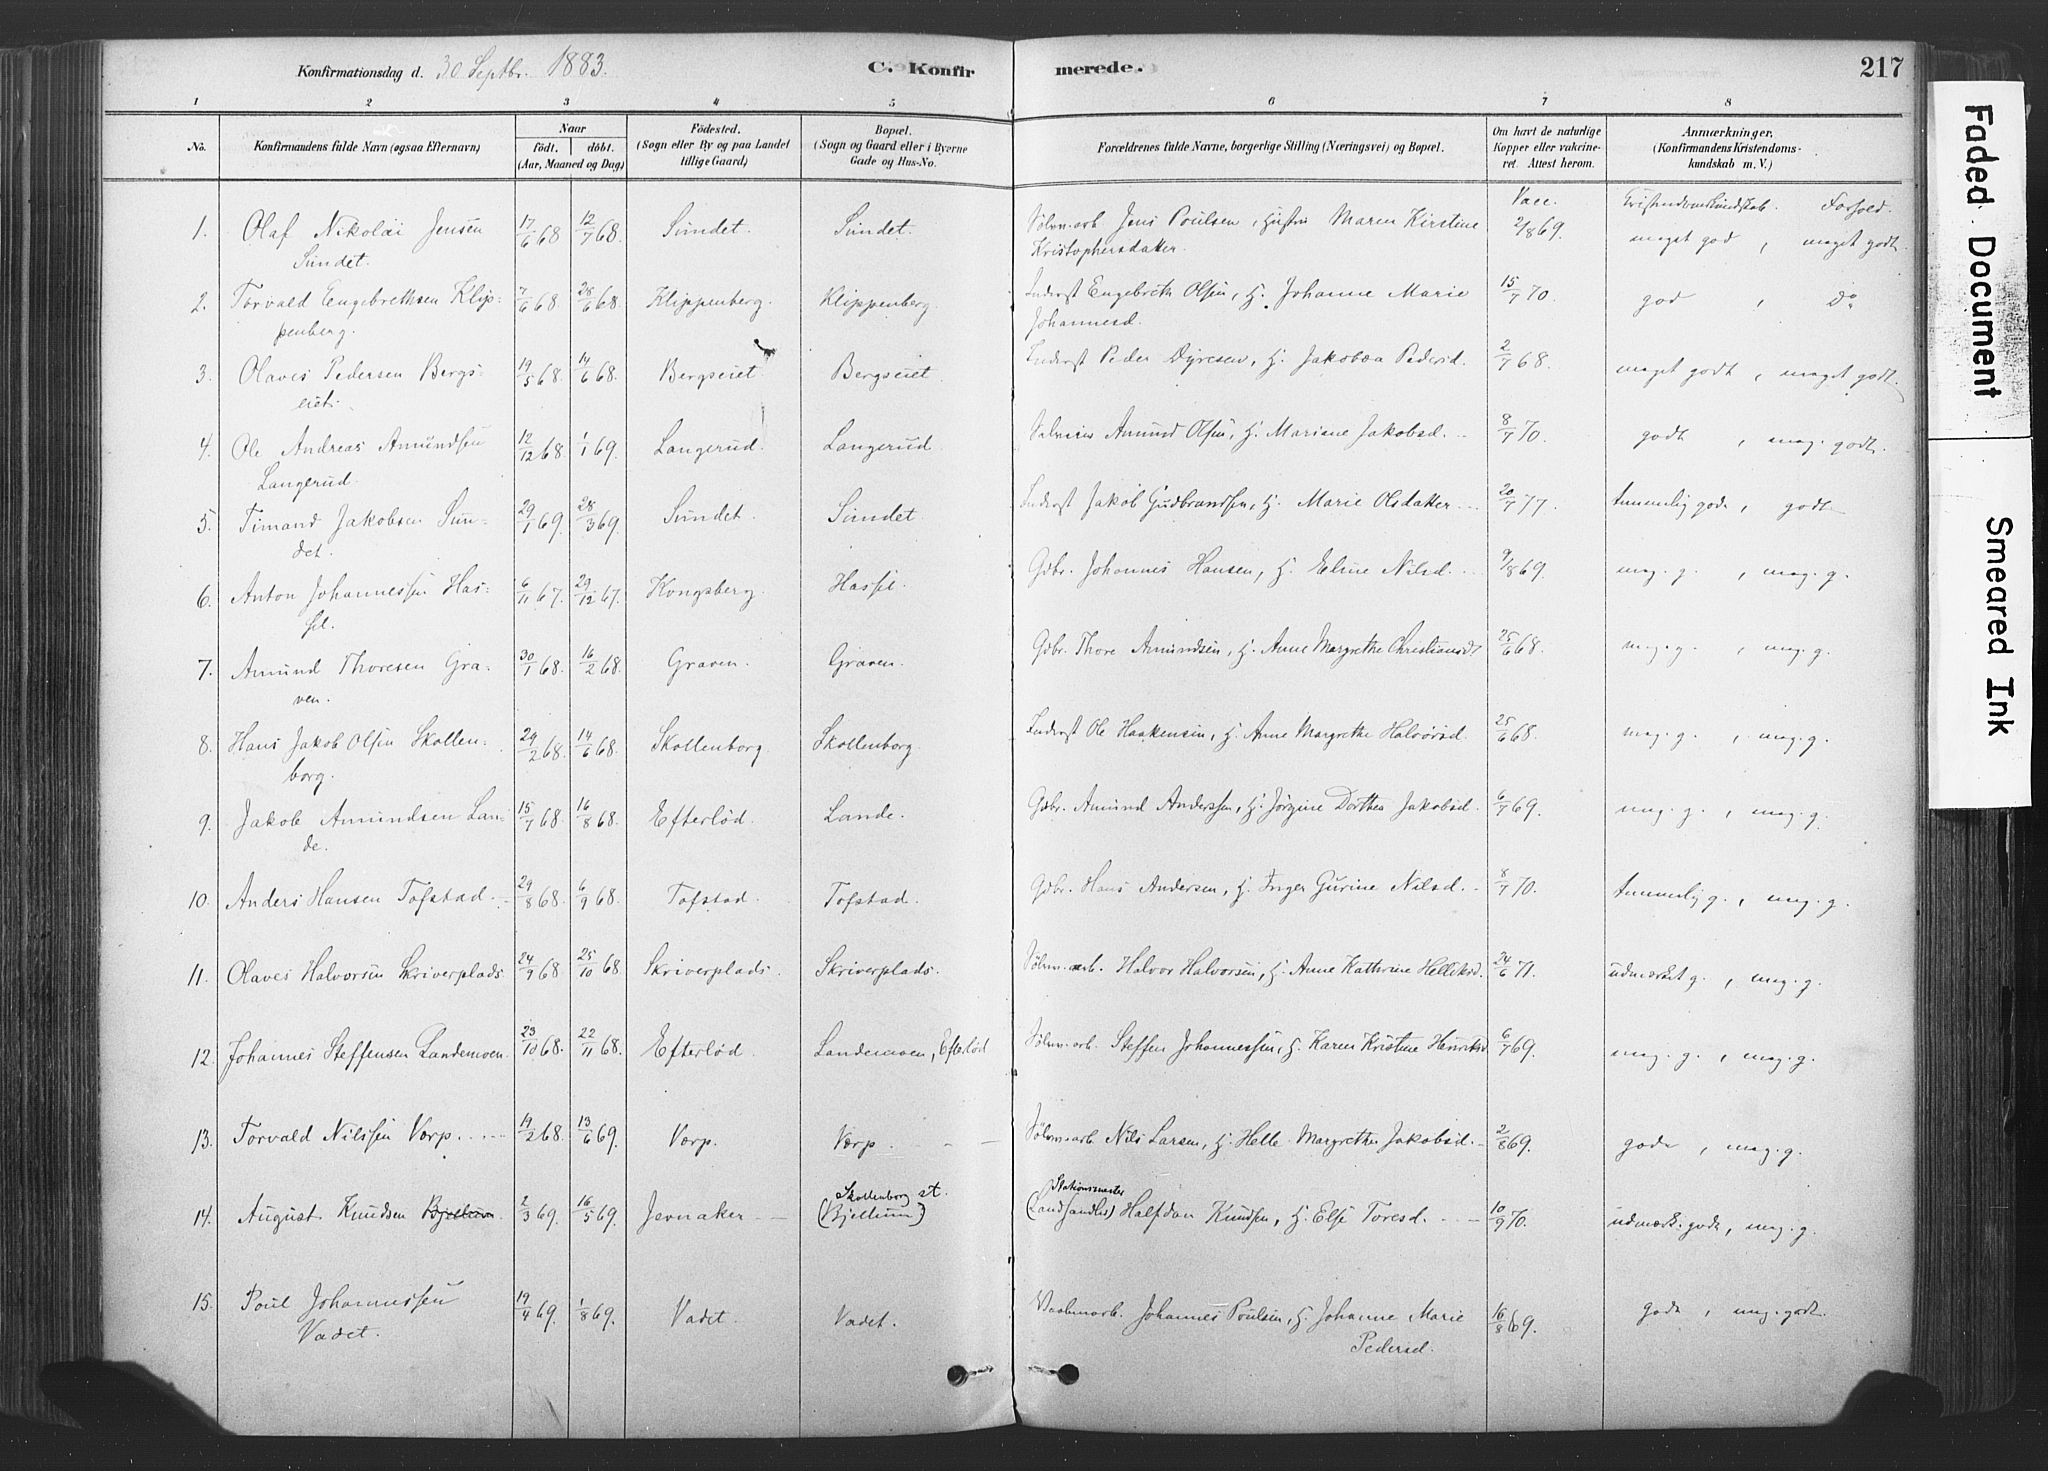 Konfirmationsdag d. 30. Septbr. 1883. C. Konfirmerede. 217
1 2 3 4 5 6 7 8
No. Konfirmandens fulde Navn (ogsaa Efternavn) Naar födt. döbt. (Aar, Maaned og Dag) Födested. (Sogn eller By og paa Landet tillige Gaard) Bopæl. (Sogn og Gaard eller i Byerne Gade og Hus-No. Forældrenes fulde Navne, borgerlige Stilling (Næringsvei) og Bopæl. Om havt de naturlige Kopper eller vakcineret. Attest herom. Anmærkninger. (Konfirmandens Kristendomskundskab m. V.)
Vacc. Kristendomskundskab. Forhold.
1. Olaf Nikolai Jensen Sundet. 17/6 68 12/7 68. Sundet. Sundet. Sölvv.arb. Jens Poulsen, Hustru Maren Kirstine Kristophersdatter. 2/8 69. meget god, meget godt.
2. Torvald Engebrethsen Klippenberg. 7/6 68 28/6 68. Klippenberg. Klippenberg. Inderst Engebreth Olsen, H. Johanne Marie Johannesd. 15/7 70 god, do
3. Olaves Pedersen Bergseiet. 19/5 68. 14/6 68. Bergseiet Bergseiet. Inderst Peder Dyresen, H. Jakobæa Pedersd. 2/7 68. meget godt, meget godt.
4. Ole Andreas Amundsen Langerud. 12/12 68. 1/1 69. Langerud. Langerud. Amund Olsen, H. Mariane Jakobsd. 8/7 70. godt, meg. godt.
5. Timand Jakobsen Sundet. 29/1 69. 28/3 69. Sundet. Sundet. Inderst Jakob Gudbrandsen, H. Marie Olsdatter 20/7 77. temmelig gode, godt
6. Anton Johannessen Hassel. 6/11 67. 29/12 67. Kongsberg. Hassel. Gdbr. Johannes Hansen, H. Eline Nilsd. 9/8 69. meg. g., meg. g.
7. Amund Thoresen Graven. 30/1 68. 16/2 68. Graven. Graven. Gdbr. Thore Amundsen, H. Anne Margrethe Christiansdt 25/6 68 meg. g., meg. g.
8. Hans Jakob Olsen Skollenborg. 29/2 68. 14/6 68. Skollenborg. Skollenborg Inderst Ole Haakensen, H. Anne Margrethe Halvorsd. 25/6 68. meg. g., meg. g.
9. Jakob Amundsen Lande. 15/7 68. 16/8 68. Efterlød. Lande. Gdbr. Amund Anderssen, H. Jørgine Dorthea Jakobsd. 6/7 69. meg. g., meg. g.
10. Anders Hansen Tofstad. 29/8 68. 6/9 68. Tofstad. Tofstad. Gdbr. Hans Andersen, H. Inger Gurine Nilsd. 8/7 70. temmelig g., meg. g.
11. Olaves Halvorsen Skriverplads 24/9 68 25/10 68 Skriverplads. Skriverplads. Sölvv.arb. Halvor Halvorsen, H. Anne Kathrine Helliksd. 24/6 71. udmærket g., meg. g.
12. Johannes Steffensen Landemoen. 23/10 68. 22/11 68. Efterlød. Landemoen, Efterlød Sölvv.arb. Steffen Johannessen, H. Karen Kristine Henriksd. 6/7 69. meg. g., meg. g.
13. Torvald Nilssen Værp. 19/2 68. 13/6 69. Værp. Værp. Sölvv.arb. Nils Larsen, H. Helle Margrethe Jakobsd. 2/8 69. gode, meg. g.
14. August Knudsen Bjellum. 2/3 69. 16/5 69. Jevnaker Skollenborg st. (Bjellum) Stationsmester (Landhandler) Halfdan Knudsen, H. Else Toresd. 10/9 70. udmærk. gode, meg. g.
15. Poul Johannessen Vadet. 19/4 69. 1/8 69. Vadet. Vadet. Vaabenarb. Johannes Poulsen, H. Johanne Marie Pedersd. 16/8 69. gode, meg. godt.
Faded Document
Smeared Ink